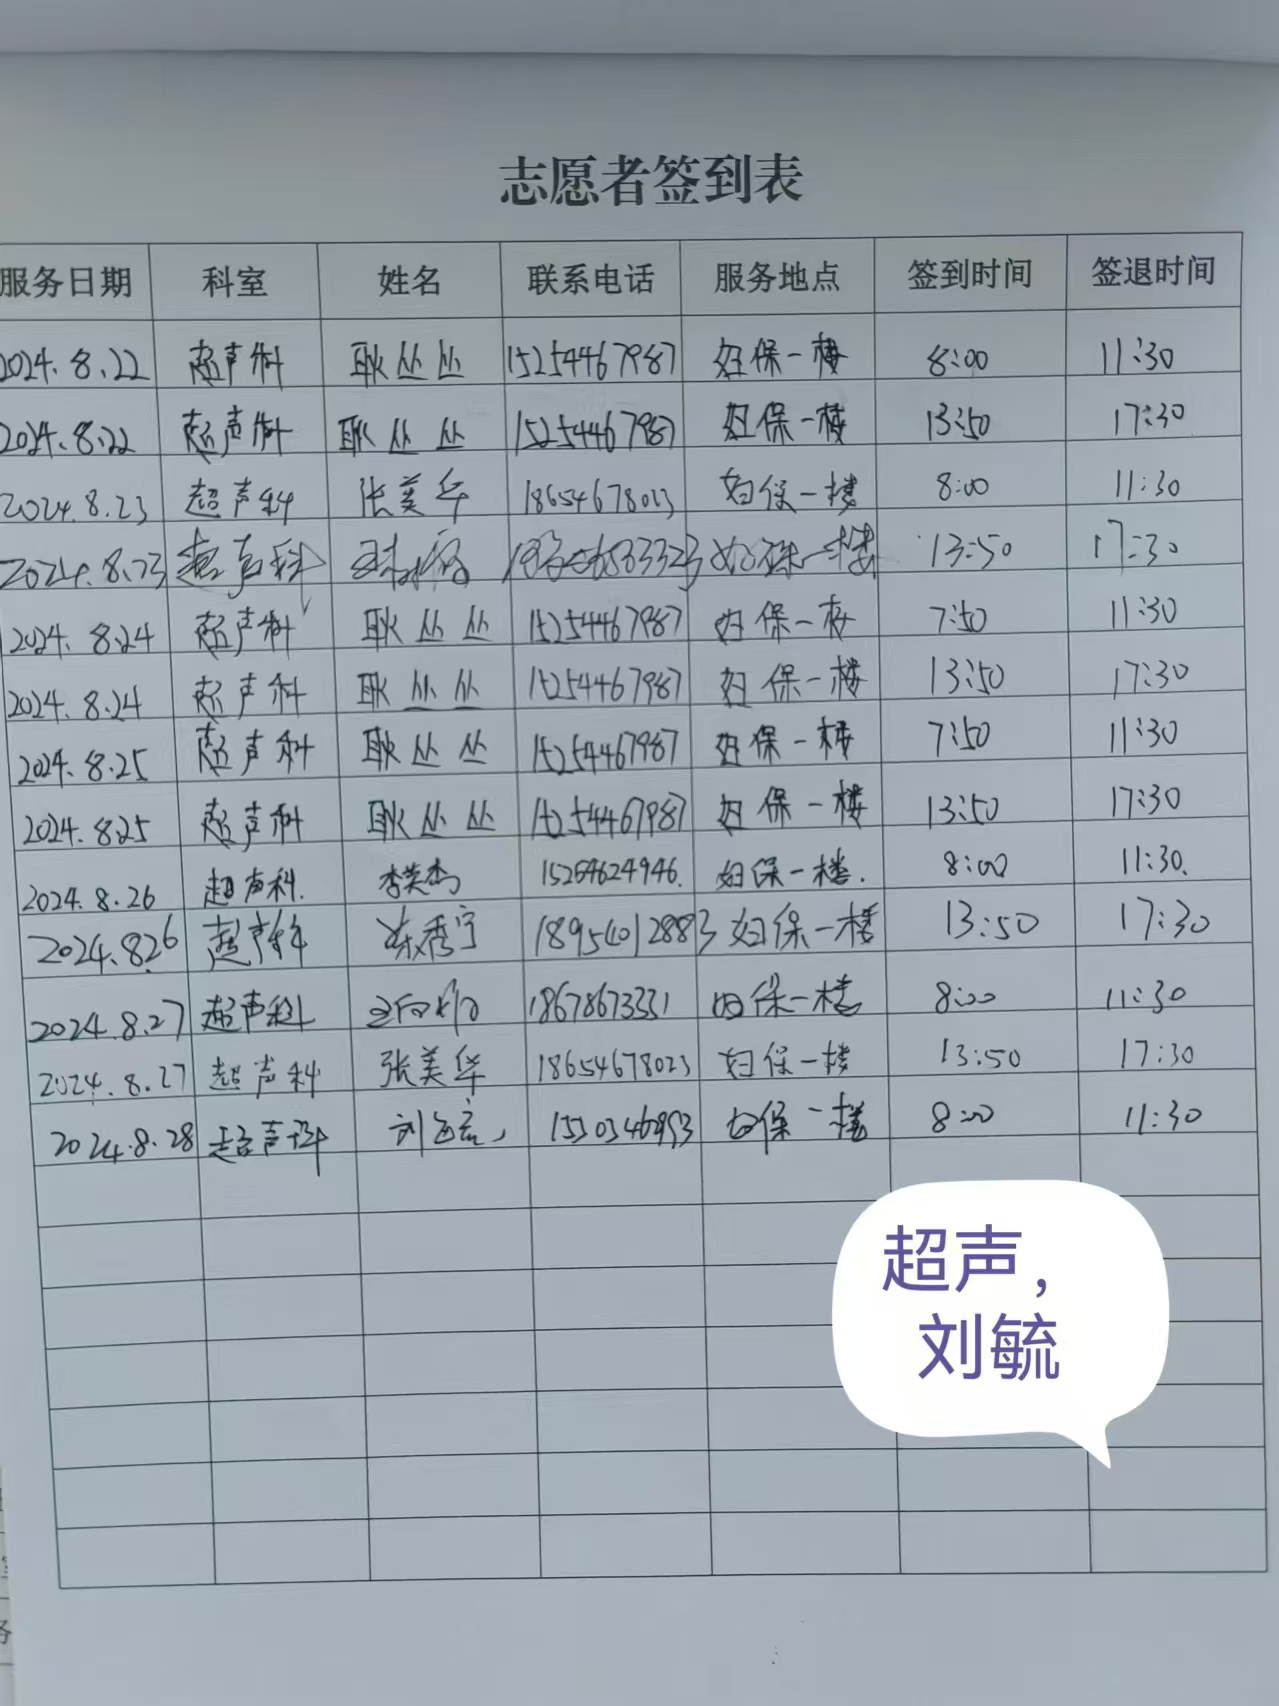 志愿者签到表
服务日期 科室 姓名 联系电话 服务地点 签到时间 签退时间
2024.8.22 超声科 耿丛丛 15254467987 妇保一楼 8:00 11:30
2024.8.22 超声科 耿丛丛 15254467987 妇保一楼 13:50 17:30
2024.8.23 超声科 张美华 18654678023 妇保一楼 8:00 11:30
2024.8.23 超声科 妇保一楼 13:50 17:30
2024.8.24 超声科 耿丛丛 15254467987 妇保一楼 7:50 11:30
2024.8.24 超声科 耿丛丛 15254467987 妇保一楼 13:50 17:30
2024.8.25 超声科 耿丛丛 15254467987 妇保一楼 7:50 11:30
2024.8.25 超声科 耿丛丛 15254467987 妇保一楼 13:50 17:30
2024.8.26 超声科. 李英杰 15264624946. 妇保一楼. 8:00 11:30.
2024.8.26 超声科 陈秀宁 18954012883 妇保一楼 13:50 17:30
2024.8.27 超声科 18678673331 妇保一楼 8:00 11:30
2024.8.27 超声科 张美华 18654678023 妇保一楼 13:50 17:30
2024.8.28 超声科 刘 妇保一楼 8:00 11:30
超声，
刘毓